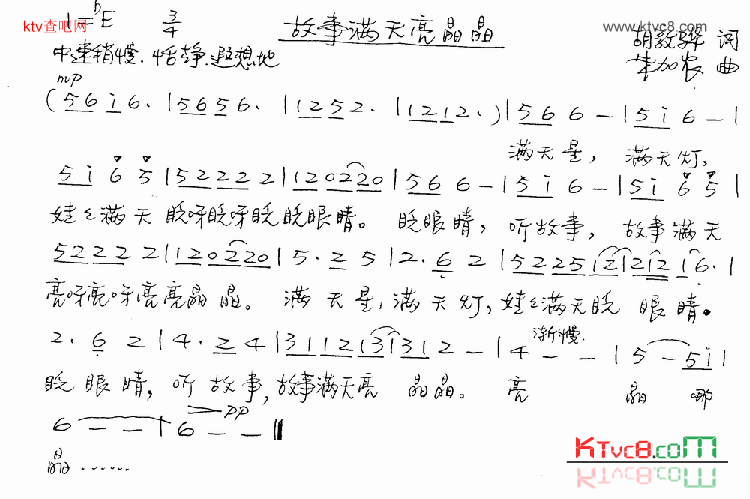 ktv查吧网
ktvc8.com
www.ktvc8.com
1=♭E 3/4 故事满天亮晶晶
词
中速稍慢.恬静.遐想地
朱加农 曲
mp
(5 6 i 6. | 5 6 5 6. | 1 2 5 2. | 1 2 1 2.) | 5 6 6 - | 5 i 6 - |
满天星， 满天灯，
5 i 6 5 | 5 2 2 2 2 | 1 2 0 2 2 0 | 5 6 6 - | 5 i 6 - | 5 i 6 5 |
娃娃满天眨呀眨呀眨眨眼睛。 眨眼睛， 听故事， 故事满天
5 2 2 2 2 | 1 2 0 2 2 0 | 5. 2 5 | 2. 6 2 | 5 2 2 5 1 2 | 2 1 2 1 6. |
亮呀亮呀亮亮晶晶。 满天星，满天灯，娃娃满天眨 眼睛。
渐慢.
2. 6 2 | 4. 2 4 | 3 1 1 2 1 3 | 3 1 2 - | 4 - - | 5 - 5 i |
眨眼睛，听故事，故事满天亮 晶晶。 亮 晶 哪
pp
6 - - | 6 - - ‖
晶......
KTvc8.com